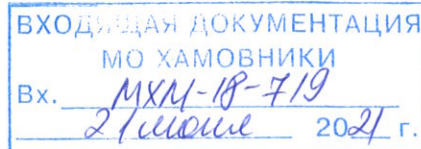 ВХОДЯЩАЯ ДОКУМЕНТАЦИЯ
МО ХАМОВНИКИ
Вх. МХМ-18-719
21 июля 2021 г.